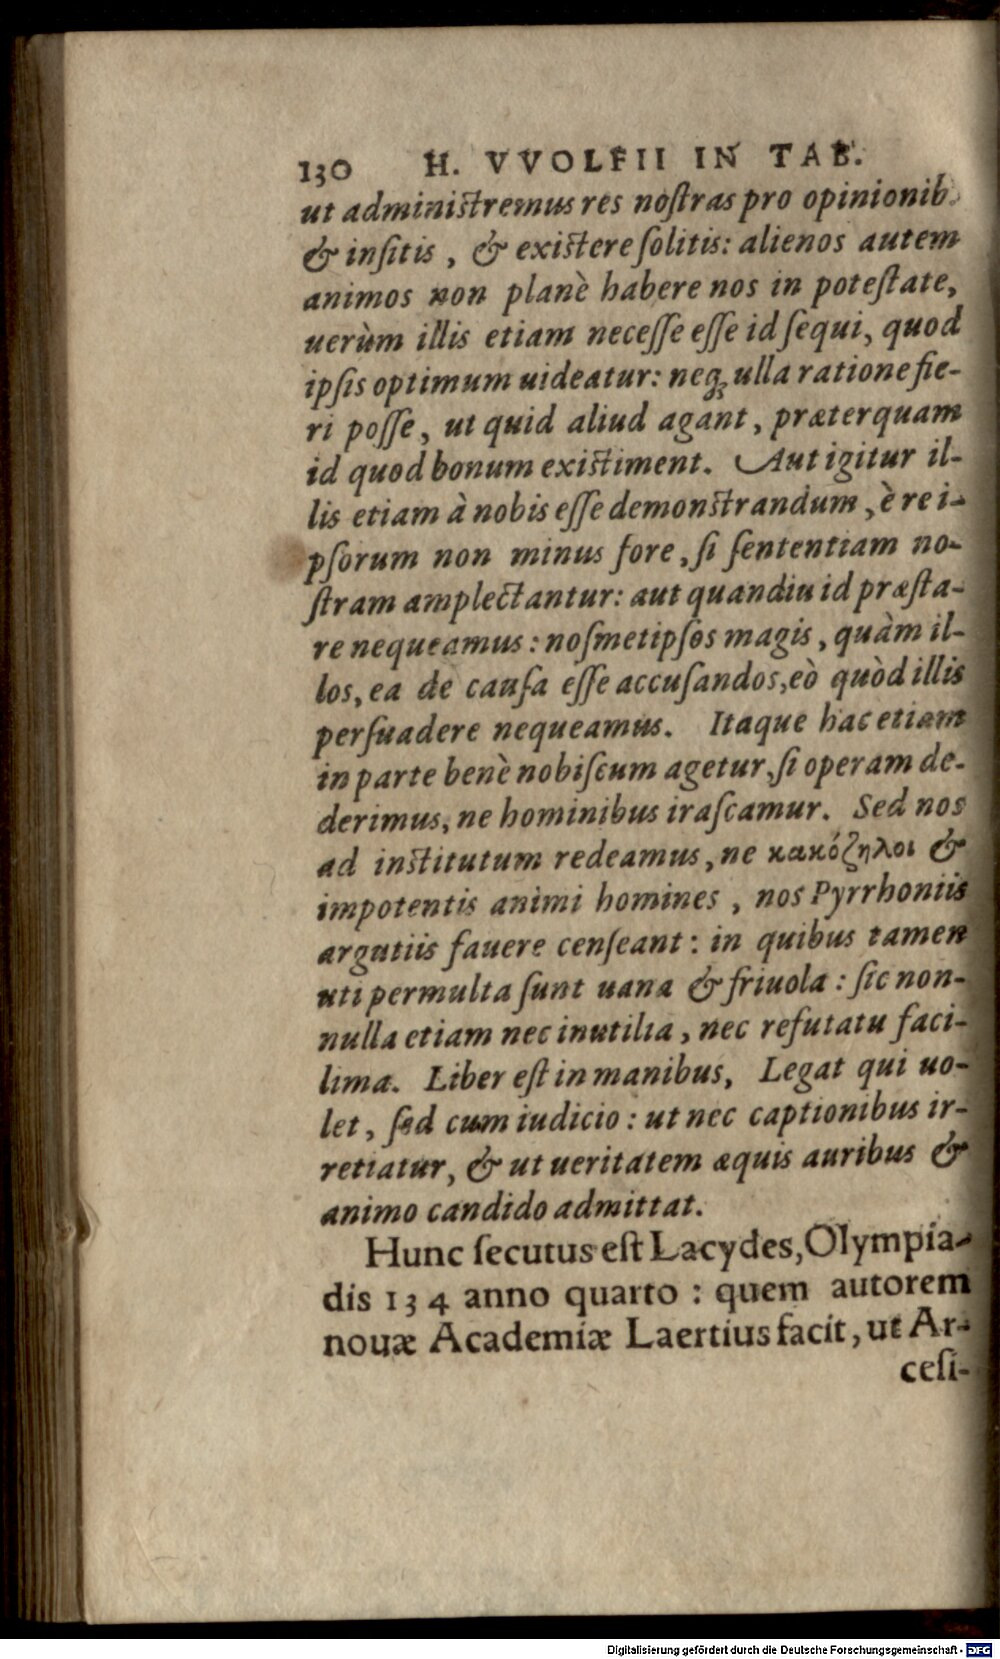 130 H. VVOLFII IN TAB.
ut adminiſtremus res noſtras pro opinionib.
& inſitis, & exiſtere ſolitis: alienos autem
animos non planè habere nos in poteſtate,
uerùm illis etiam neceſſe eſſe id ſequi, quod
ipſis optimum uideatur: neq; ulla ratione fie-
ri poſſe, ut quid aliud agant, præterquam
id quod bonum exiſtiment. Aut igitur il-
lis etiam à nobis eſſe demonſtrandum, è re i-
pſorum non minus fore, ſi ſententiam no-
ſtram amplectantur: aut quandiu id præſta-
re nequeamus: noſmetipſos magis, quàm il-
los, ea de cauſa eſſe accuſandos, eò quòd illis
perſuadere nequeamus. Itaque hac etiam
in parte benè nobiſcum agetur, ſi operam de-
derimus, ne hominibus iraſcamur. Sed nos
ad inſtitutum redeamus, ne κακόζηλοι &
impotentis animi homines, nos Pyrrhoniis
argutiis fauere cenſeant: in quibus tamen
uti permulta ſunt uana & friuola: ſic non-
nulla etiam nec inutilia, nec refutatu faci-
lima. Liber eſt in manibus, Legat qui uo-
let, ſed cum iudicio: ut nec captionibus ir-
retiatur, & ut ueritatem æquis auribus &
animo candido admittat.
Hunc ſecutus eſt Lacydes, Olympia-
dis 134 anno quarto: quem autorem
nouæ Academiæ Laertius facit, ut Ar-
ceſi-
Digitalisierung gefördert durch die Deutsche Forschungsgemeinschaft - DFG